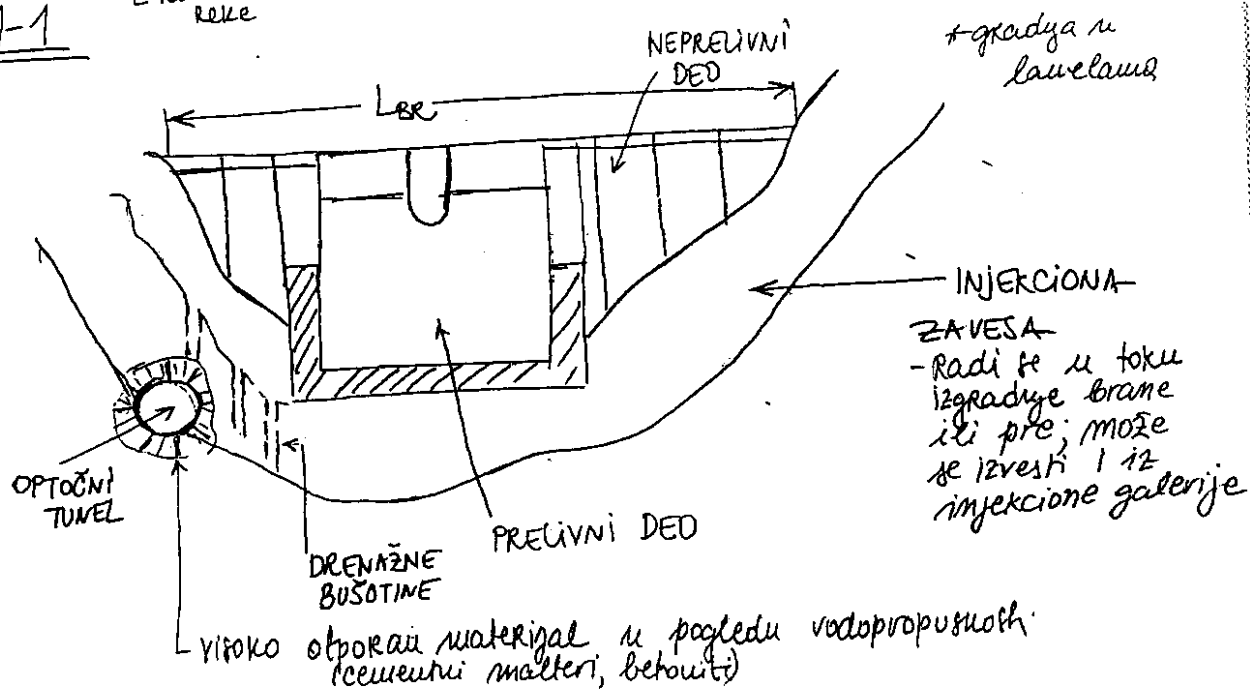 -1
reke
NEPRELIVNI
DEO
*gradnja u
lamelama
LBR
INJEKCIONA
ZAVESA
- Radi se u toku
izgradnje brane
ili pre; može
se izvesti i iz
injekcione galerije
OPTOČNI
TUNEL
DRENAŽNE
BUŠOTINE
PRELIVNI DEO
visoko otporan materijal u pogledu vodopropusnosti.
(cementni malteri, betoniti)